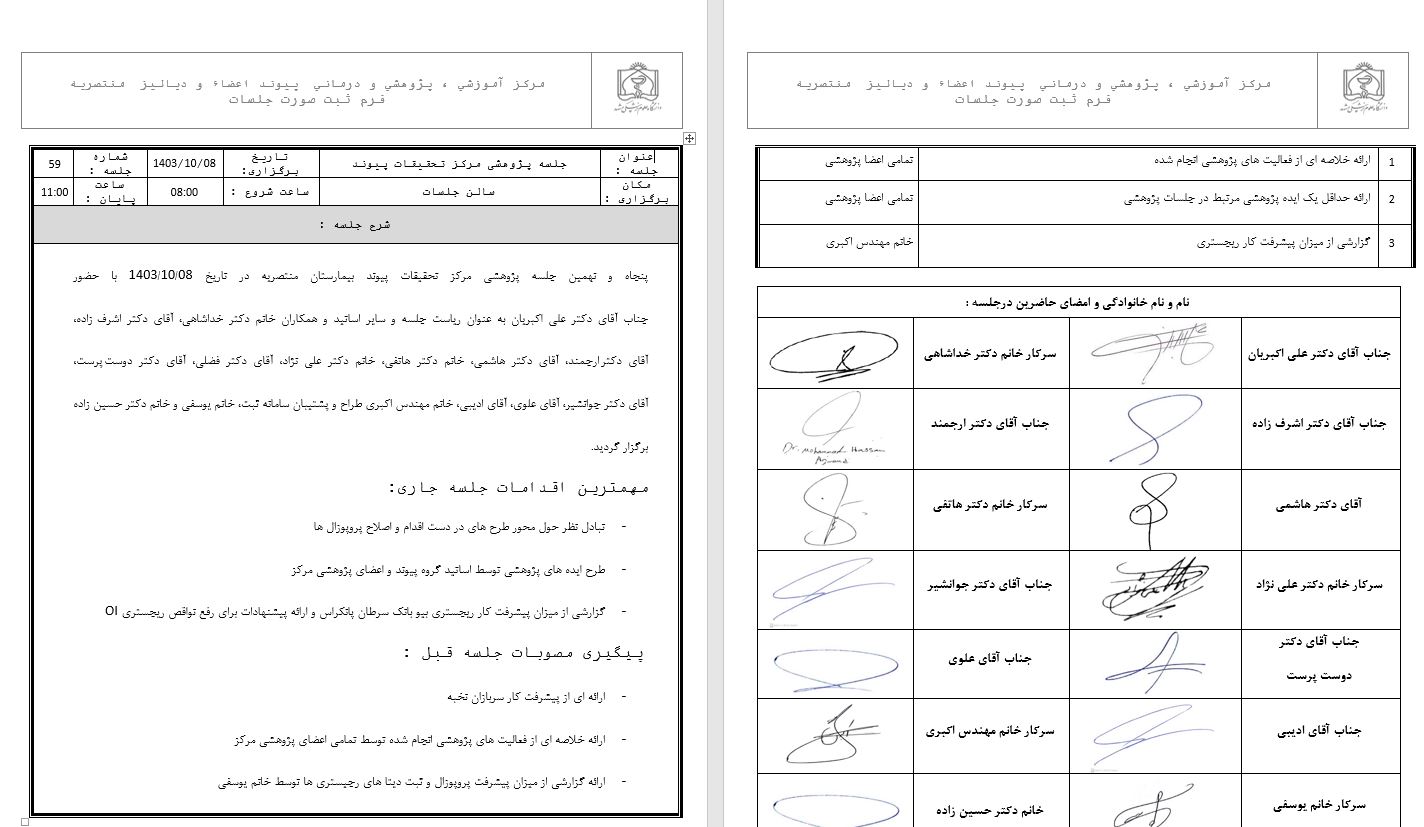 مرکز آموزشي ، پژوهشي و درماني پيوند اعضاء و دياليز منتصريه
فرم ثبت صورت جلسات
عنوان جلسه :
جلسه پژوهشی مرکز تحقیقات پیوند
تاریخ برگزاری:
1403/10/08
شماره جلسه :
59
مکان برگزاری :
سالن جلسات
ساعت شروع :
08:00
ساعت پایان :
11:00
شرح جلسه :
پنجاه و نهمین جلسه پژوهشی مرکز تحقیقات پیوند بیمارستان منتصریه در تاریخ 1403/10/08 با حضور
جناب آقای دکتر علی اکبریان به عنوان ریاست جلسه و سایر اساتید و همکاران خانم دکتر خداشاهی، آقای دکتر اشرف زاده،
آقای دکترارجمند، آقای دکتر هاشمی، خانم دکتر هاتفی، خانم دکتر علی نژاد، آقای دکتر فضلی، آقای دکتر دوست‌پرست،
آقای دکتر جوانشیر، آقای علوی، آقای ادیبی، خانم مهندس اکبری طراح و پشتیبان سامانه ثبت، خانم یوسفی و خانم دکتر حسین زاده
برگزار گردید.
مهمترین اقدامات جلسه جاری:
- تبادل نظر حول محور طرح های در دست اقدام و اصلاح پروپوزال ها
- طرح ایده های پژوهشی توسط اساتید گروه پیوند و اعضای پژوهشی مرکز
- گزارشی از میزان پیشرفت کار ریجستری بیو بانک سرطان پانکراس و ارائه پیشنهادات برای رفع نواقص ریجستری OI
پیگیری مصوبات جلسه قبل :
- ارائه ای از پیشرفت کار سربازان نخبه
- ارائه خلاصه ای از فعالیت های پژوهشی انجام شده توسط تمامی اعضای پژوهشی مرکز
- ارائه گزارشی از میزان پیشرفت پروپوزال و ثبت دیتا های رجیستری ها توسط خانم یوسفی
مرکز آموزشي ، پژوهشي و درماني پيوند اعضاء و دياليز منتصريه
فرم ثبت صورت جلسات
1 ارائه خلاصه ای از فعالیت های پژوهشی انجام شده تمامی اعضا پژوهشی
2 ارائه حداقل یک ایده پژوهشی مرتبط در جلسات پژوهشی تمامی اعضا پژوهشی
3 گزارشی از میزان پیشرفت کار ریجستری خانم مهندس اکبری
نام و نام خانوادگی و امضای حاضرین درجلسه :
جناب آقای دکتر علی اکبریان
سرکار خانم دکتر خداشاهی
جناب آقای دکتر اشرف زاده
جناب آقای دکتر ارجمند
Dr. Mohammad Hassan
Arjmand
آقای دکتر هاشمی
سرکار خانم دکتر هاتفی
سرکار خانم دکتر علی نژاد
جناب آقای دکتر جوانشیر
جناب آقای دکتر
دوست پرست
جناب آقای علوی
جناب آقای ادیبی
سرکار خانم مهندس اکبری
سرکار خانم یوسفی
خانم دکتر حسین زاده